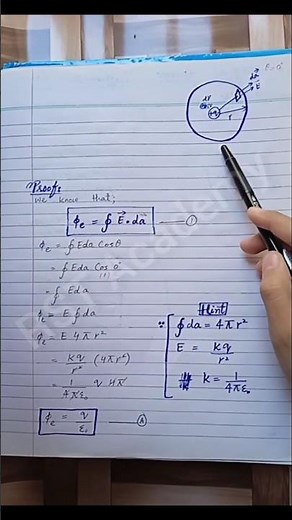 θ=0°
da
E
+q
r
Proof:
We know that;
ϕe = ∮ E⃗ • da⃗ —— ①
ϕe = ∮ E da Cos θ
= ∮ E da Cos 0°
(1)
= ∮ E da
ϕe = E ∮ da
ϕe = E 4πr²
= Kq/r² (4πr²)
= 1/4πε₀ q 4π
ϕe = q/ε₀ —— Ⓐ
Hint
∵ ∮ da = 4πr²
E = Kq/r²
K = 1/4πε₀
Academy